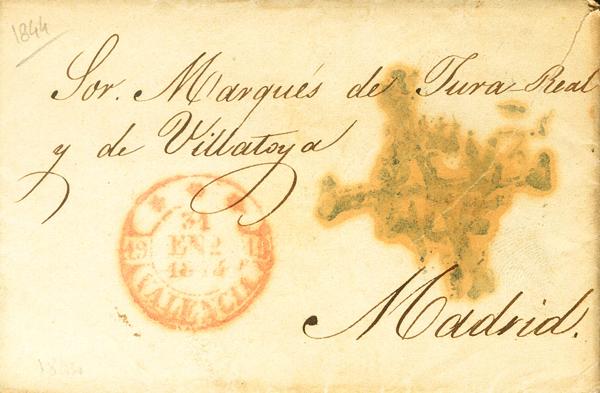 1844
Sor. Marqués de Tura Real
y de Villatoya
31
ENE
1844
19 10
VALENCIA
Madrid.